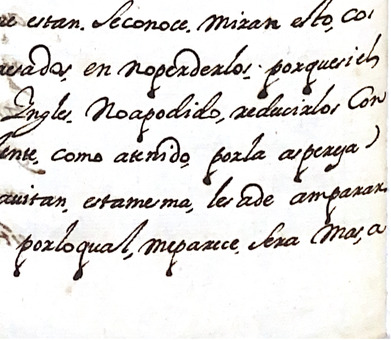 estan. Se conoce. miran esto, co
en no perderlos. porque si el
Ingles. No a podido, reducirlos Con
como a tenido, por la aspereza
auitan, esta mesma, les a de amparar.
por lo qual, me parece. Sera Mas, a